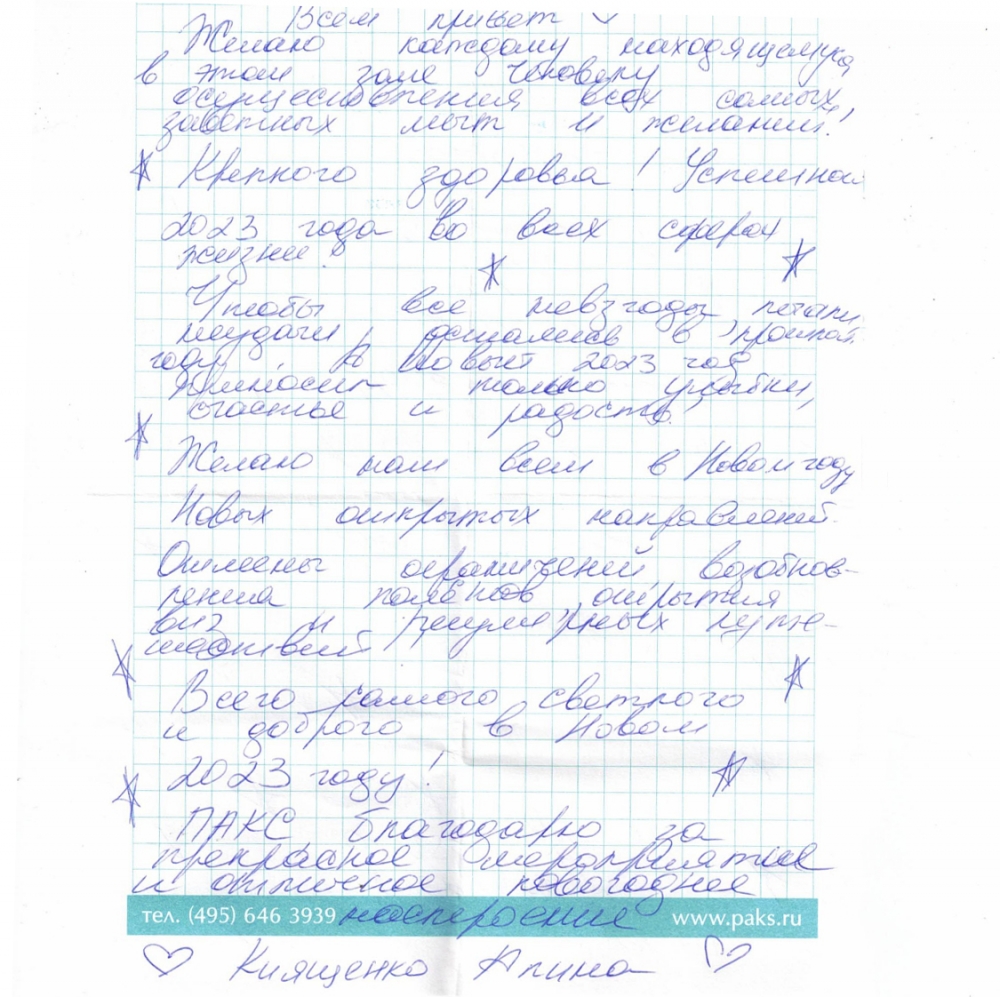 Всем привет
Желаю каждому находящемуся
в этом зале человеку
осуществления всех самых
заветных мыт и желаний!
Крепкого здоровья! Успешного
2023 года во всех сферах
жизни!
Чтобы все невзгоды, печали,
неудачи, остались в прошлом
году, а Новый 2023 год
приносил только улыбки,
счастье и радость!
Желаю нам всем в Новом году
Новых открытых направлений.
Отмены ограничений, возобнов-
ления полётов, открытия
виз и регулярных путе-
шествий
Всего самого светлого
и доброго в Новом
2023 году!
ПАКС благодарю за
прекрасное мероприятие
и отличное новогоднее
тел. (495) 646 3939 настроение www.paks.ru
Киященко Алина